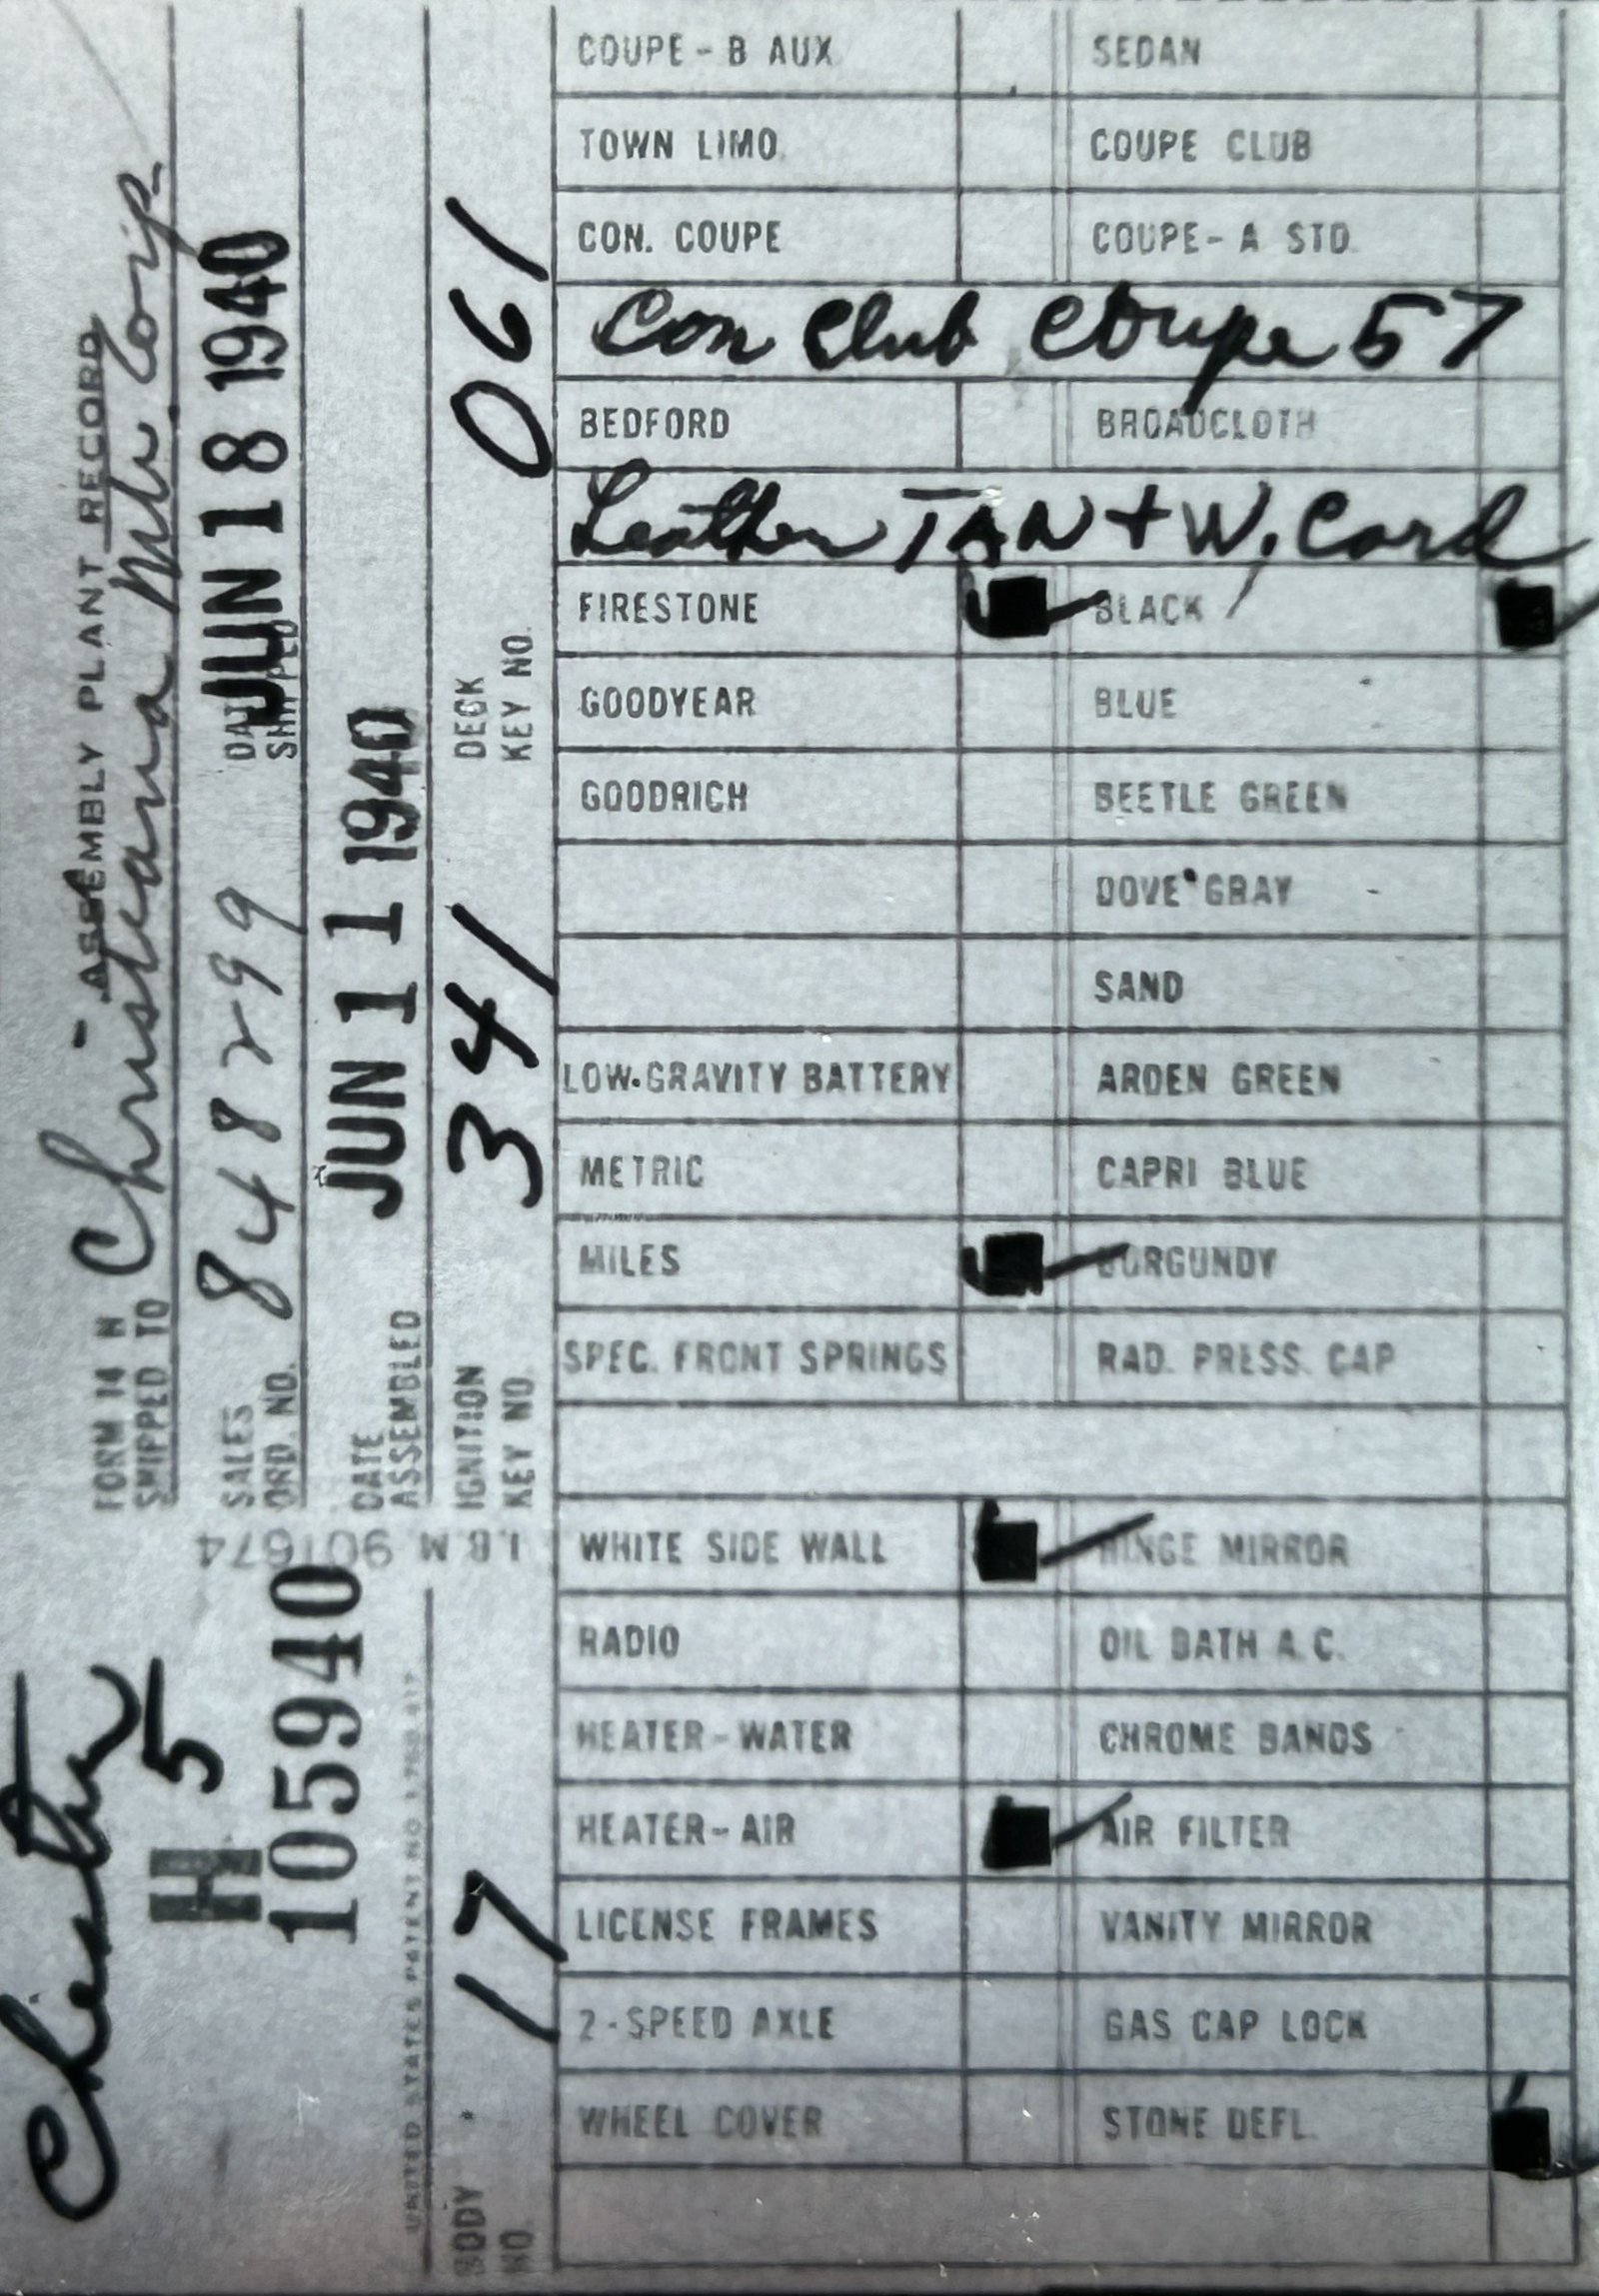 Chester
H 5
105940
UNITED STATES PATENT NO. 1,780,417
BODY NO. 17
I.B.M 901674
FORM 14 H ASSEMBLY PLANT RECORD
SHIPPED TO Christiana Mtr. Corp
SALES ORD. NO. 848299 DATE SHIPPED JUN 18 1940
DATE ASSEMBLED JUN 11 1940
IGNITION KEY NO. 341 DECK KEY NO. 061
COUPE - B AUX SEDAN
TOWN LIMO COUPE CLUB
CON. COUPE COUPE - A STD
Con Club Coupe 57
BEDFORD BROADCLOTH
Leather TAN + W. Cord
FIRESTONE BLACK
GOODYEAR BLUE
GOODRICH BEETLE GREEN
DOVE GRAY
SAND
LOW-GRAVITY BATTERY ARDEN GREEN
METRIC CAPRI BLUE
MILES BURGUNDY
SPEC. FRONT SPRINGS RAD. PRESS. CAP
WHITE SIDE WALL HINGE MIRROR
RADIO OIL BATH A.C.
HEATER - WATER CHROME BANDS
HEATER - AIR AIR FILTER
LICENSE FRAMES VANITY MIRROR
2 - SPEED AXLE GAS CAP LOCK
WHEEL COVER STONE DEFL.